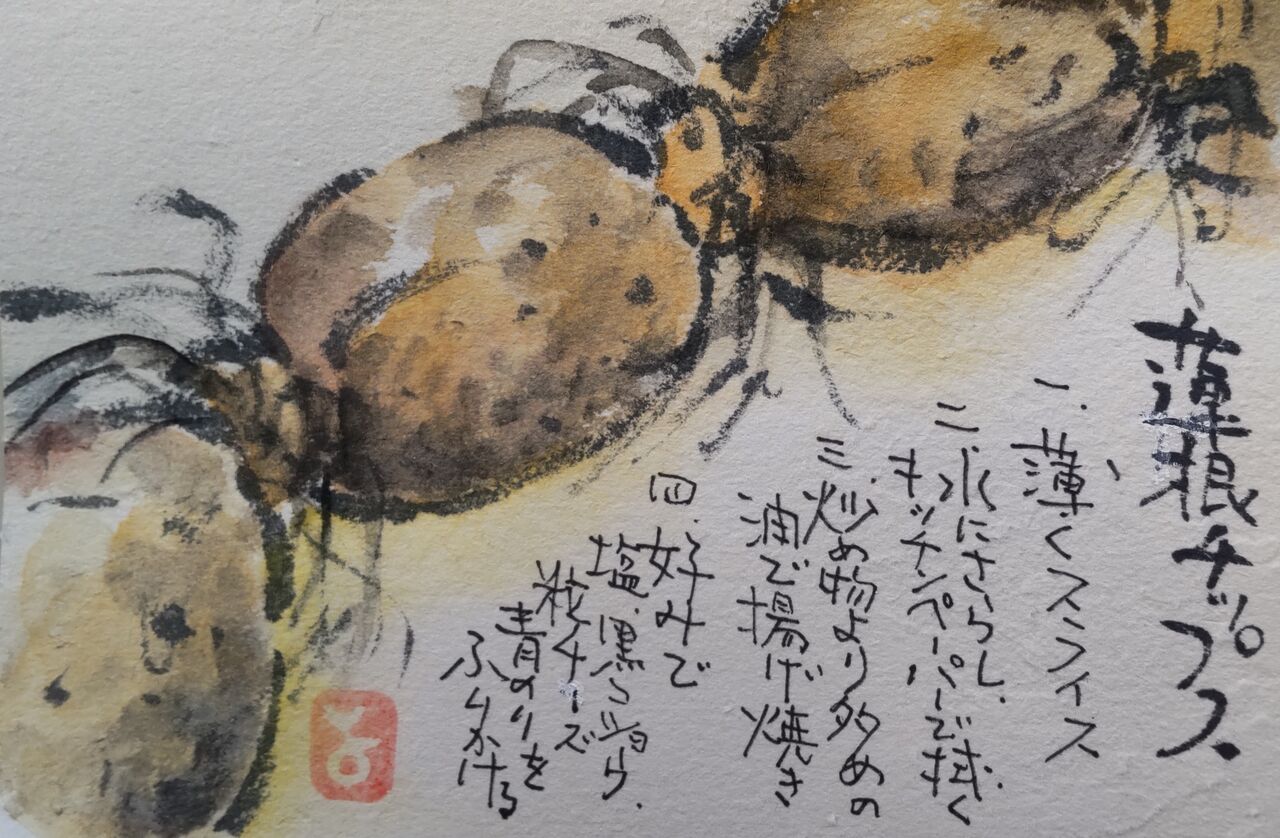 蓮根チップス
一.薄くスライス
二.水にさらし、
キッチンペーパーで拭く
三.炒め物より多めの
油で揚げ焼き
四.好みで
塩、黒こしょう、
粉チーズ
青のりを
ふりかける